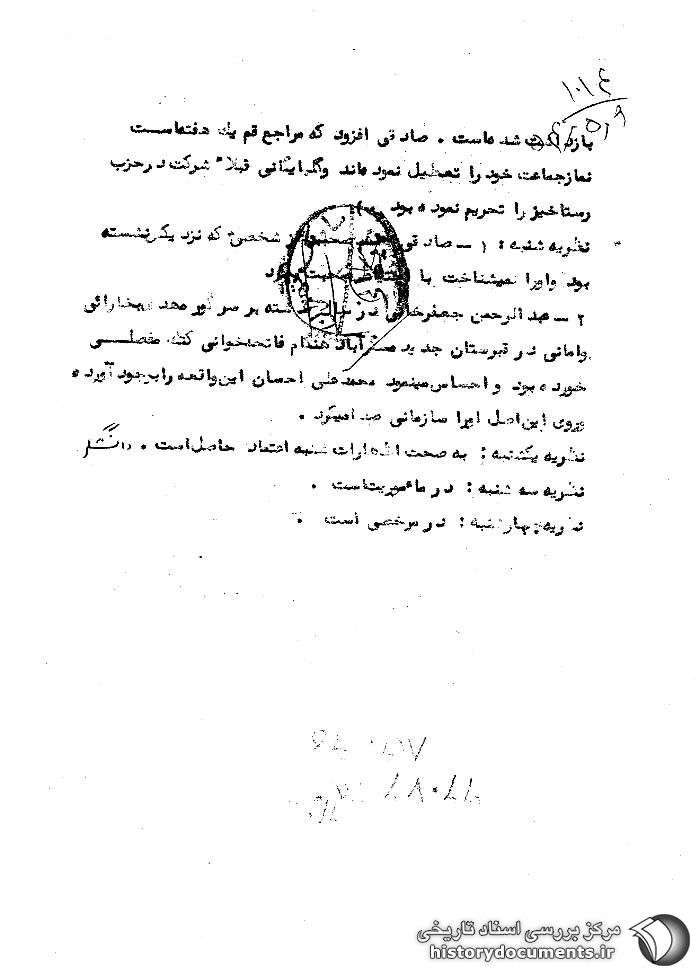 ۱۰۱۴
شده‌است . صادقی افزود که مراجع قم یک هفته‌است
نماز جماعت خود را تعطیل نموده‌اند وگلپایگانی قبلاً شرکت در حزب
رستاخیز را تحریم نموده بود
نظریه شنبه : ۱ ــ صادقی شخصی که نزد یک نشسته
بود واورا نمیشناخت با
۲ ــ عبدالرحمن بر سر گور مهدی بخارائی
وامانی در قبرستان جدید هنگام فاتحه‌خوانی کتک مفصلــی
خورده بود و احساس مینمود محمدعلی احسان این‌واقعه رابوجود آورده
وروی این‌اصل اورا سازمانی صدامیکرد .
نظریه یکشنبه : به صحت اظهارات شنبه اعتماد حاصل‌است .
نظریه سه شنبه : در ماموریت‌است .
نظریه چهارشنبه : در مرخصی است .
مرکز بررسی اسناد تاریخی
historydocuments.ir